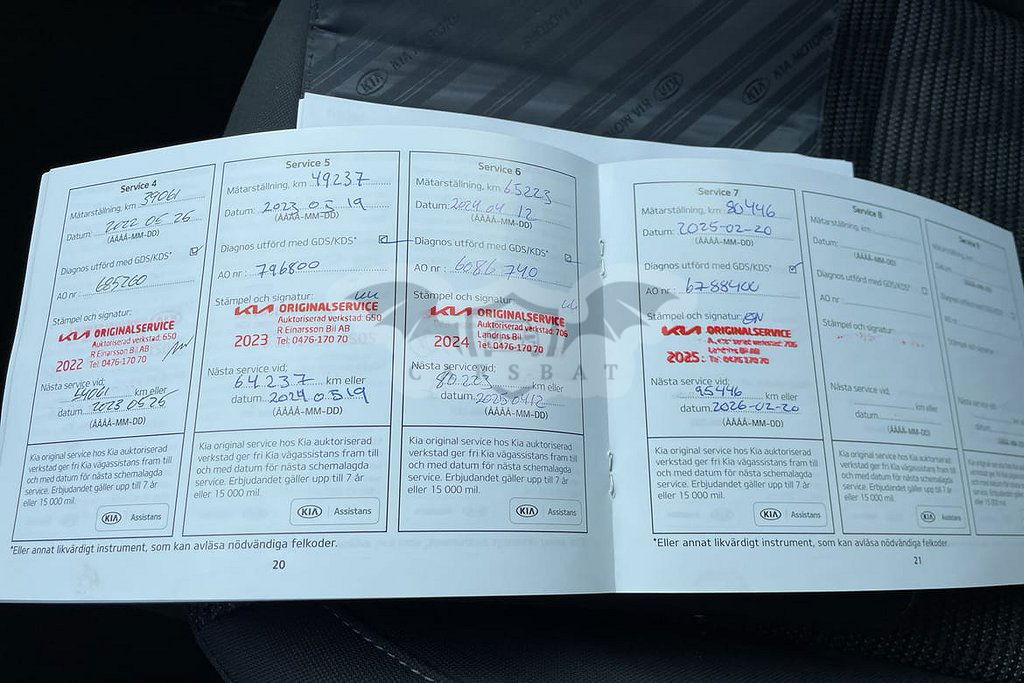 KIA
KIA MOTORS
KIA
KIA MOTORS
KIA
KIA MOTORS
Service 4
Mätarställning, km 39061
Datum: 2022 05 26
(ÅÅÅÅ-MM-DD)
Diagnos utförd med GDS/KDS*
AO nr : 685260
Stämpel och signatur:
KIA ORIGINALSERVICE
Auktoriserad verkstad: 650
R Einarsson Bil AB
2022 Tel: 0476-170 70
Nästa service vid;
54061 km eller
datum 2023 05 26
(ÅÅÅÅ-MM-DD)
Kia original service hos Kia auktoriserad
verkstad ger fri Kia vägassistans fram till
och med datum för nästa schemalagda
service. Erbjudandet gäller upp till 7 år
eller 15 000 mil.
KIA Assistans
Service 5
Mätarställning, km 49237
Datum: 2023 05 19
(ÅÅÅÅ-MM-DD)
Diagnos utförd med GDS/KDS*
AO nr : 796800
Stämpel och signatur:
KIA ORIGINALSERVICE
Auktoriserad verkstad: 650
R Einarsson Bil AB
2023 Tel: 0476-170 70
Nästa service vid;
64.237 km eller
datum 2024.05.19
(ÅÅÅÅ-MM-DD)
Kia original service hos Kia auktoriserad
verkstad ger fri Kia vägassistans fram till
och med datum för nästa schemalagda
service. Erbjudandet gäller upp till 7 år
eller 15 000 mil.
KIA Assistans
Service 6
Mätarställning, km 65223
Datum: 2024 04 12
(ÅÅÅÅ-MM-DD)
Diagnos utförd med GDS/KDS*
AO nr : 6086 740
Stämpel och signatur:
KIA ORIGINALSERVICE
Auktoriserad verkstad: 706
Landrins Bil
2024 Tel. 0476-170 70
Nästa service vid;
80.223 km eller
datum 20250412
(ÅÅÅÅ-MM-DD)
Kia original service hos Kia auktoriserad
verkstad ger fri Kia vägassistans fram till
och med datum för nästa schemalagda
service. Erbjudandet gäller upp till 7 år
eller 15 000 mil.
KIA Assistans
*Eller annat likvärdigt instrument, som kan avläsa nödvändiga felkoder.
20
Service 7
Mätarställning, km 80446
Datum: 2025-02-20
(ÅÅÅÅ-MM-DD)
Diagnos utförd med GDS/KDS*
AO nr : 6788400
Stämpel och signatur:
KIA ORIGINALSERVICE
verkstad: 706
Landrins Bil AB
2025 Tel: 0476-170 70
Nästa service vid;
95446 km eller
datum 2026-02-20
(ÅÅÅÅ-MM-DD)
Kia original service hos Kia auktoriserad
verkstad ger fri Kia vägassistans fram till
och med datum för nästa schemalagda
service. Erbjudandet gäller upp till 7 år
eller 15 000 mil.
KIA Assistans
Service 8
Mätarställning, km
Datum:
(ÅÅÅÅ-MM-DD)
Diagnos utförd med GDS/KDS*
AO nr :
Stämpel och signatur:
Nästa service vid;
km eller
datum
(ÅÅÅÅ-MM-DD)
Kia original service hos Kia auktoriserad
verkstad ger fri Kia vägassistans fram till
och med datum för nästa schemalagda
service. Erbjudandet gäller upp till 7 år
eller 15 000 mil.
KIA Assistans
Service 9
Mätarställning, km
Datum:
Nästa service vid;
*Eller annat likvärdigt instrument, som kan avläsa nödvändiga felkoder.
21